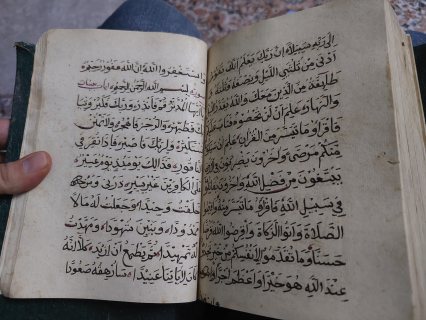 الى ربه سبيلا ان ربك يعلم انك تقوم
ادنى من ثلثي الليل ونصفه وثلثه و
طائفة من الذين معك والله يقدر الليل
والنهار علم ان لن تحصوه فتاب عليكم
فاقرؤا ما تيسر من القران علم ان سيكون
منكم مرضى واخرون يضربون في الارض
يبتغون من فضل الله واخرون يقاتلون
في سبيل الله فاقرؤا ما تيسر منه واقيموا
الصلاة واتوا الزكاة واقرضوا الله قرضا
حسنا وما تقدموا لانفسكم من خير تجدوه
عند الله هو خيرا واعظم اجرا
واستغفروا الله ان الله غفور رحيم
سورة بسم الله الرحمن الرحيم
يا ايها المدثر قم فانذر وربك فكبر وثيا
بك فطهر والرجز فاهجر ولا تمنن
تستكثر ولربك فاصبر فاذا نقر في
الناقور فذلك يومئذ يوم عسير
على الكافرين غير يسير ذرني ومن
خلقت وحيدا وجعلت له مالا
ممدودا وبنين شهودا ومهدت
له تمهيدا ثم يطمع ان ازيد كلا انه
كان لاياتنا عنيدا سارهقه صعودا